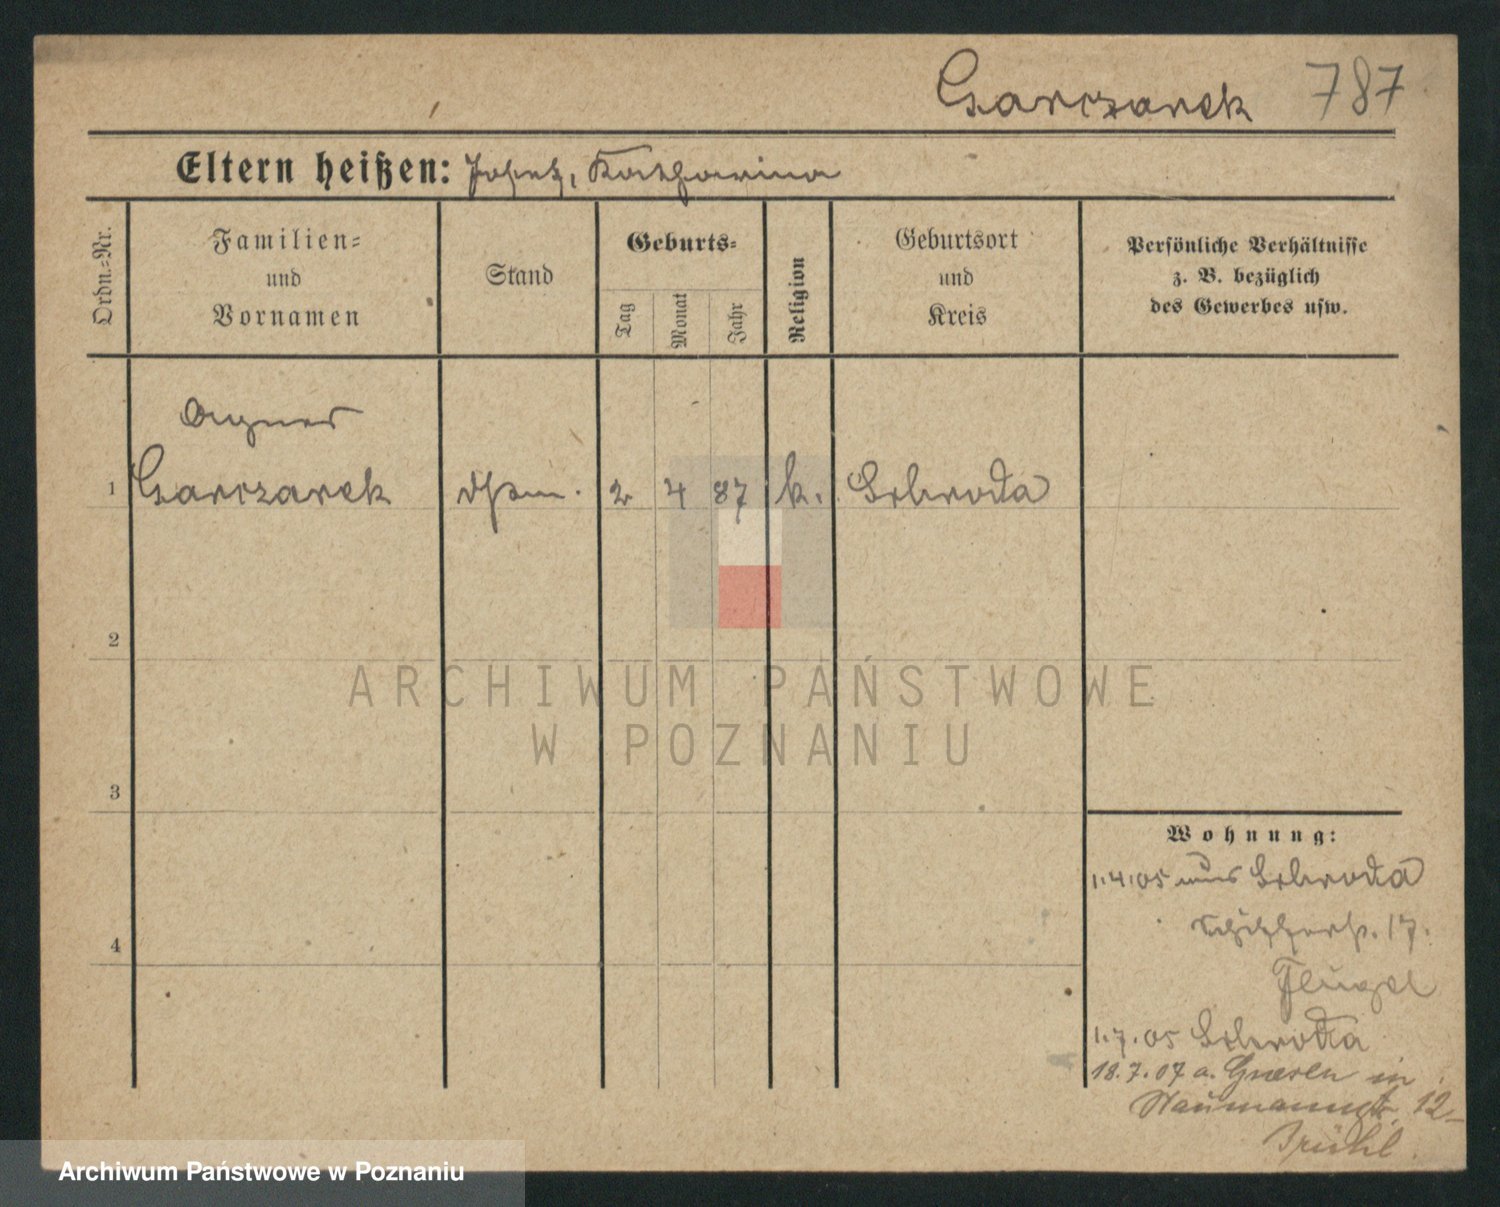 Garczarek 787
Eltern heißen: Josef, Katharina
Ordn.-Nr.
Familien-
und
Vornamen
Stand
Geburts-
Tag
Monat
Jahr
Religion
Geburtsort
und
Kreis
Persönliche Verhältnisse
z. B. bezüglich
des Gewerbes usw.
Agnes
1 Garczarek 2 4 87 k. Schroda
2
3
4
Wohnung:
1.4.05 aus Schroda
Schützenstr. 17.
Flügel
1.7.05 Schroda
18.7.07 a. Gnesen in
Naumannstr. 12
Brühl.
ARCHIWUM PAŃSTWOWE
W POZNANIU
Archiwum Państwowe w Poznaniu